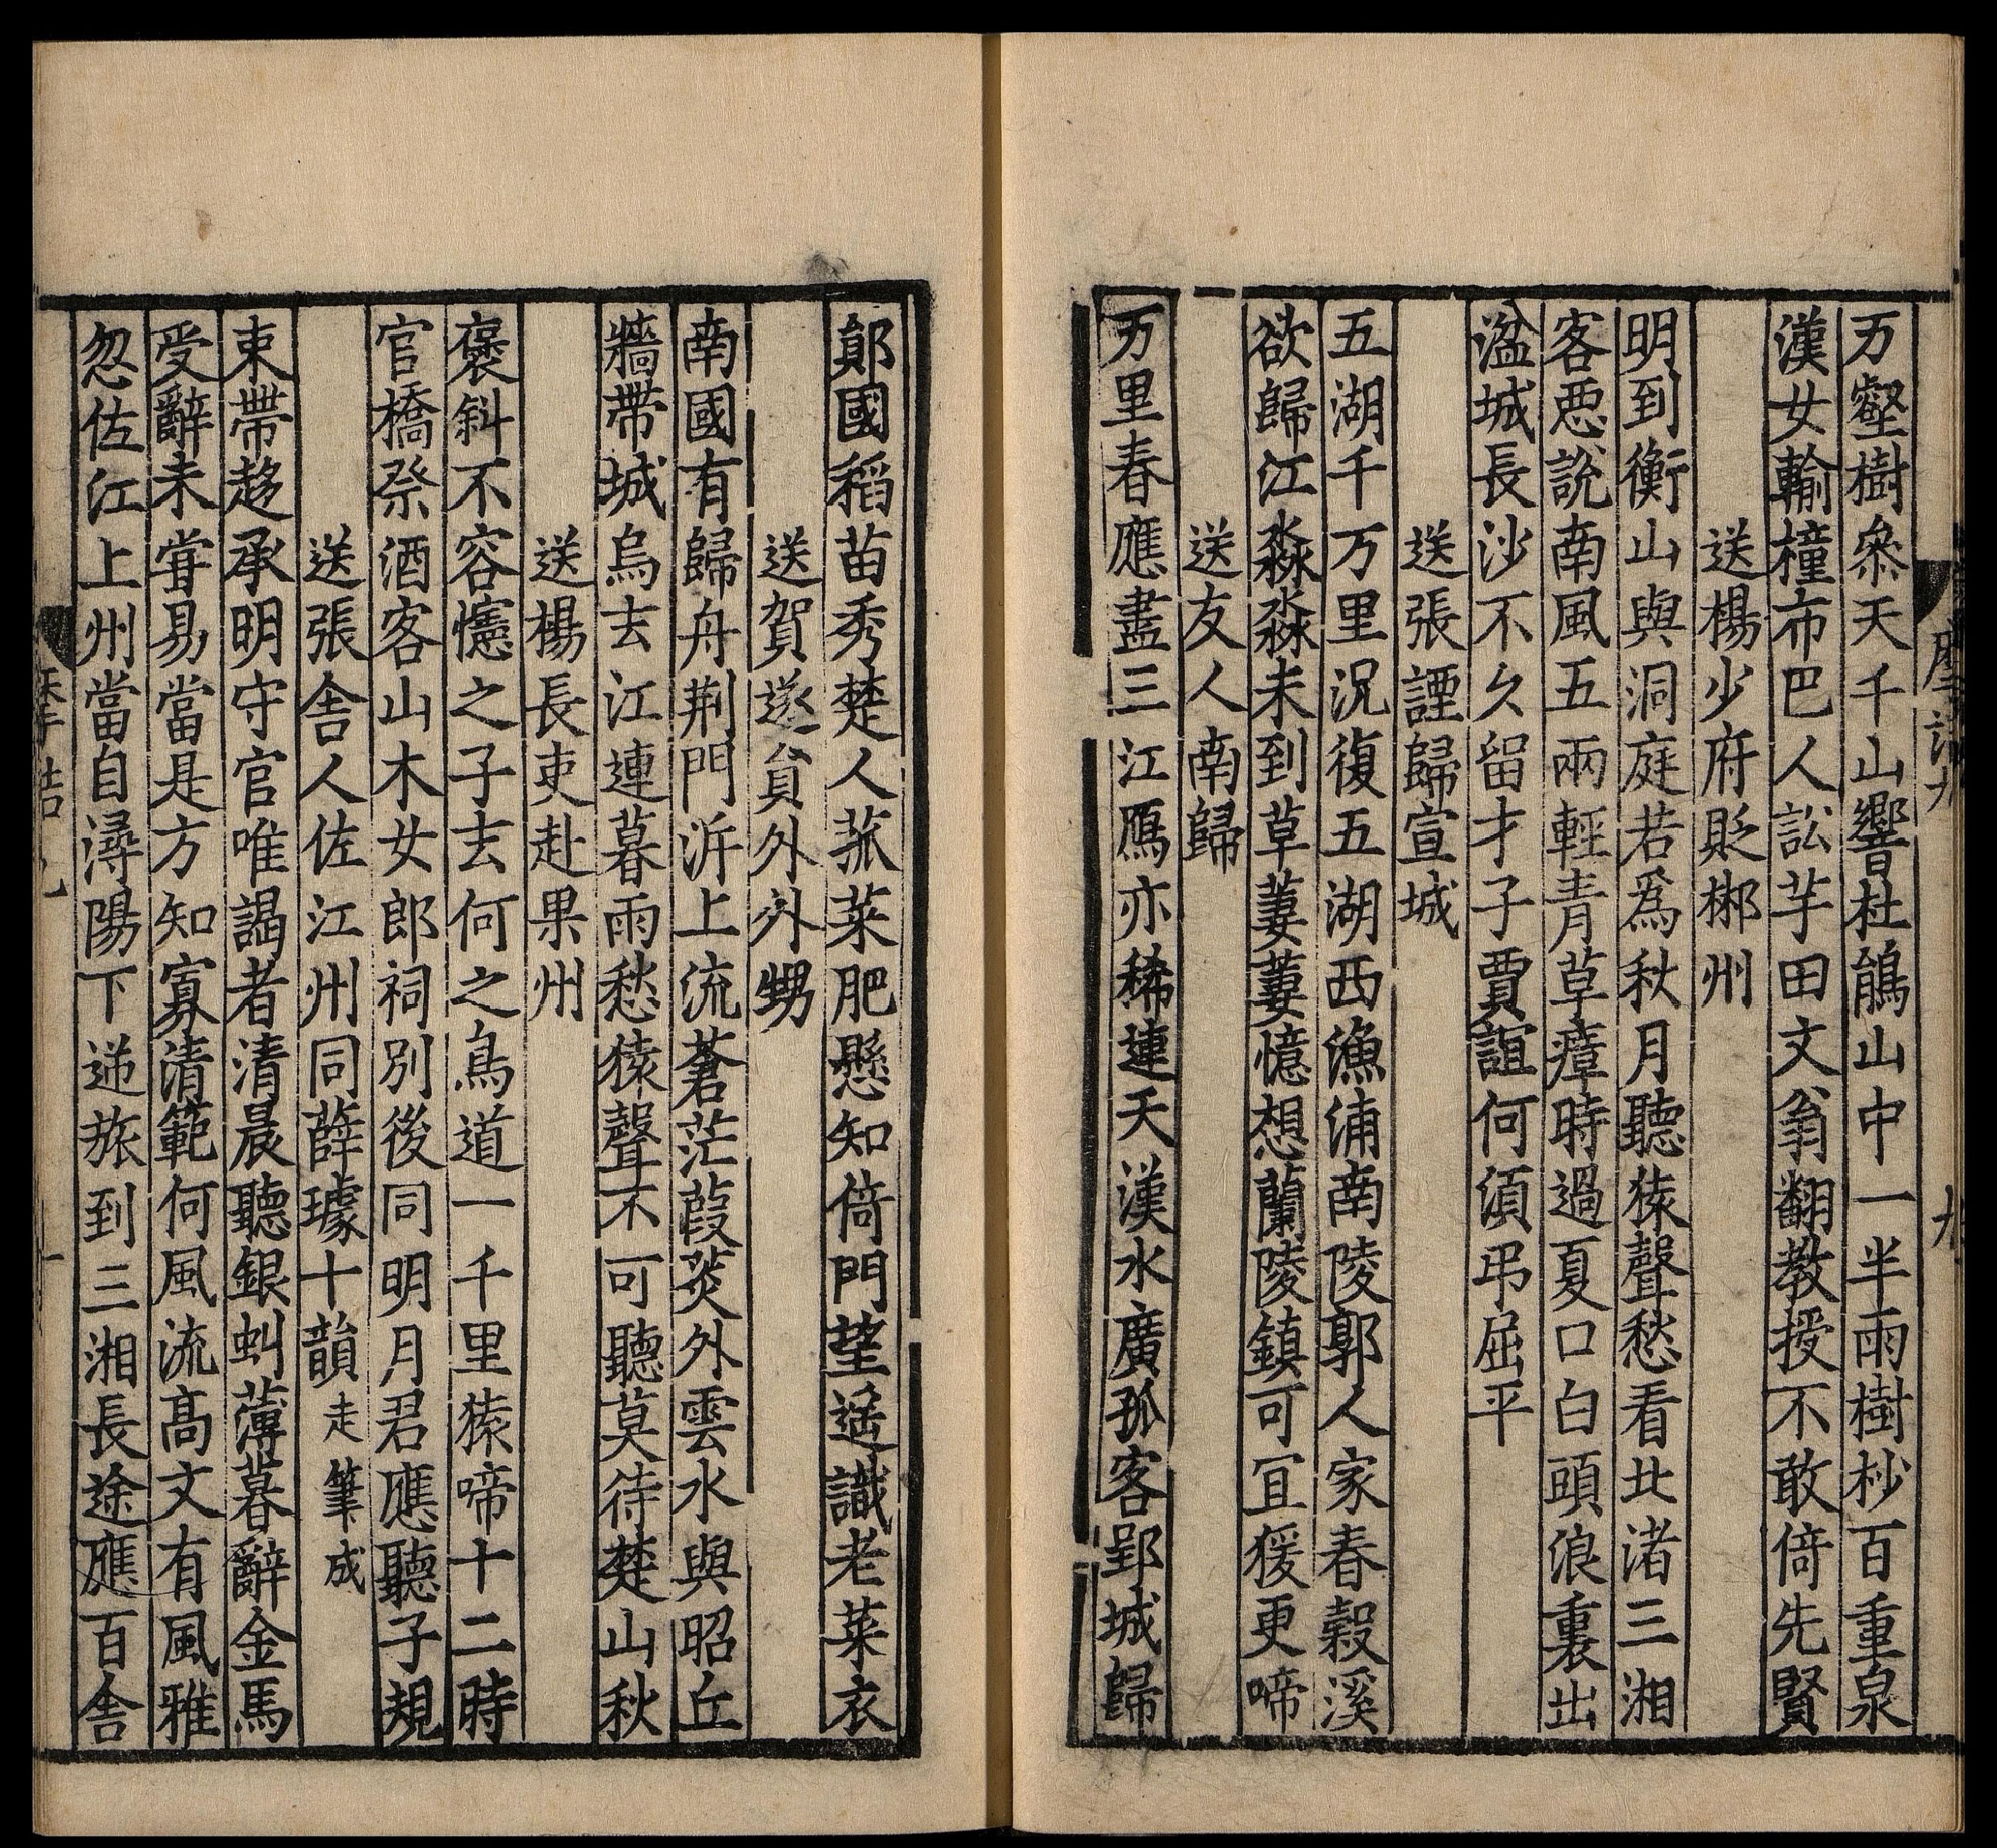 万壑樹叅天千山響杜鵑山中一半雨樹杪百重泉
漢女輸橦布巴人訟芋田文翁翻教授不敢倚先賢
送楊少府貶郴州
明到衡山與洞庭若爲秋月聽猿聲愁看北渚三湘
客惡說南風五兩輕青草瘴時過夏口白頭浪裏出
湓城長沙不久留才子賈誼何須弔屈平
送張諲歸宣城
五湖千万里况復五湖西漁浦南陵郭人家春穀溪
欲歸江淼淼未到草萋萋憶想蘭陵鎮可冝猨更啼
送友人南歸
万里春應盡三江鴈亦稀連天漢水廣孤客郢城歸
鄖國稻苗秀楚人菰菜肥懸知倚門望遥識老萊衣
送賀遂貟外外甥
南國有歸舟荆門泝上流蒼茫葭菼外雲水與昭丘
牆帶城烏去江連暮雨愁猿聲不可聽莫待楚山秋
送楊長吏赴果州
褒斜不容幰之子去何之鳥道一千里猿啼十二時
官橋祭酒客山木女郎祠别後同明月君應聽子規
送張舍人佐江州同薛璩十韻走筆成
束帶趍承明守官唯謁者清晨聽銀虯薄暮辭金馬
受辭未甞易當是方知寡清範何風流髙文有風雅
忽佐江上州當自潯陽下逓旅到三湘長途應百舍